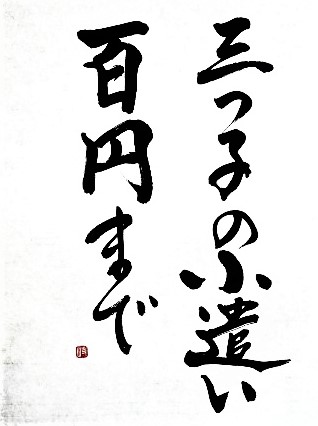 三つ子の小遣い
百円まで